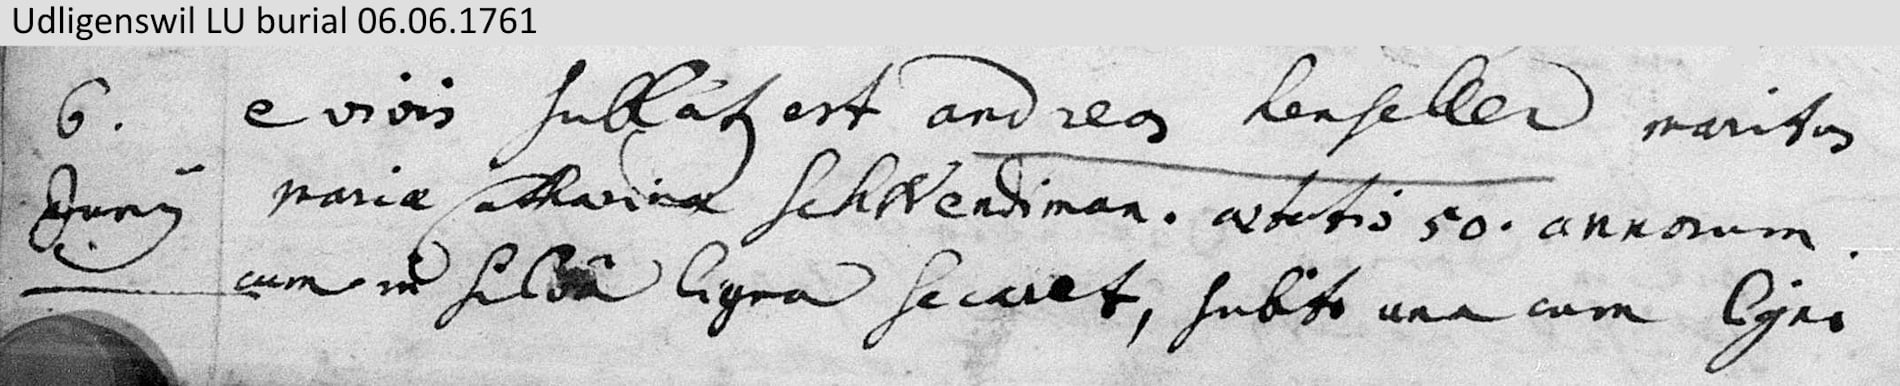 Udligenswil LU burial 06.06.1761
6. e vivis sublat9 est andreas henseller maritus
Junÿ mariæ Catharinæ SchWendiman. ætatis 50. annorum.
cum in silvâ ligna secaret, subito una cum ligno